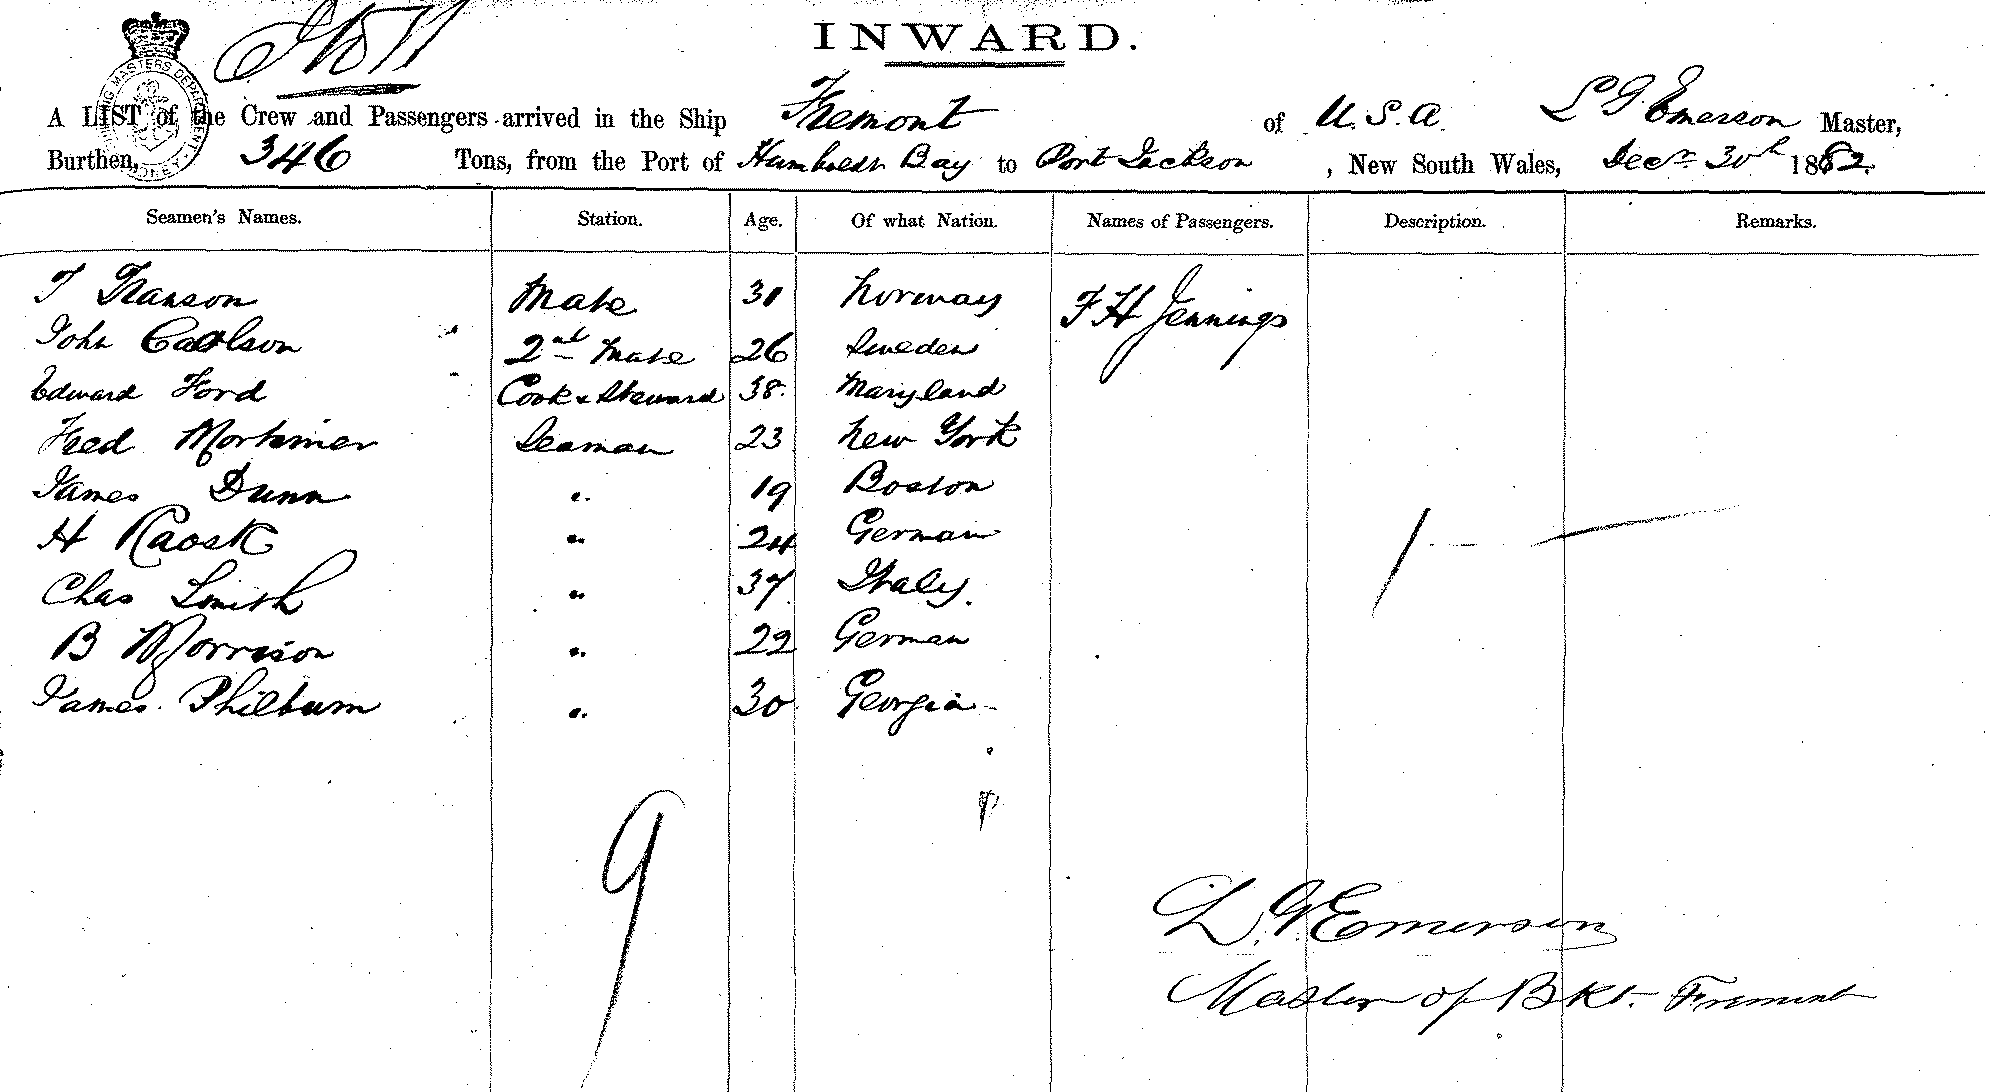 INWARD.
A LIST of the Crew and Passengers arrived in the Ship Fremont of U.S.A. L G Emerson Master,
Burthen, 346 Tons, from the Port of Humboldt Bay to Port Jackson, New South Wales, Decr 30th 1882.
Seamen's Names. Station. Age. Of what Nation. Names of Passengers. Description. Remarks.
Mate 31 Norway F H Jennings
John Carlson 2nd Mate 26 Sweden
Edward Ford Cook & Steward 38 Maryland
Fred Mortimer Seaman 23 New York
James Dunn " 19 Boston
H " 24 German
Chas Smith " 37 Italy.
B Morrison " 22 German
James Philburn " 30 Georgia
9 1
L. G. Emerson
Master of Bkt. Fremont